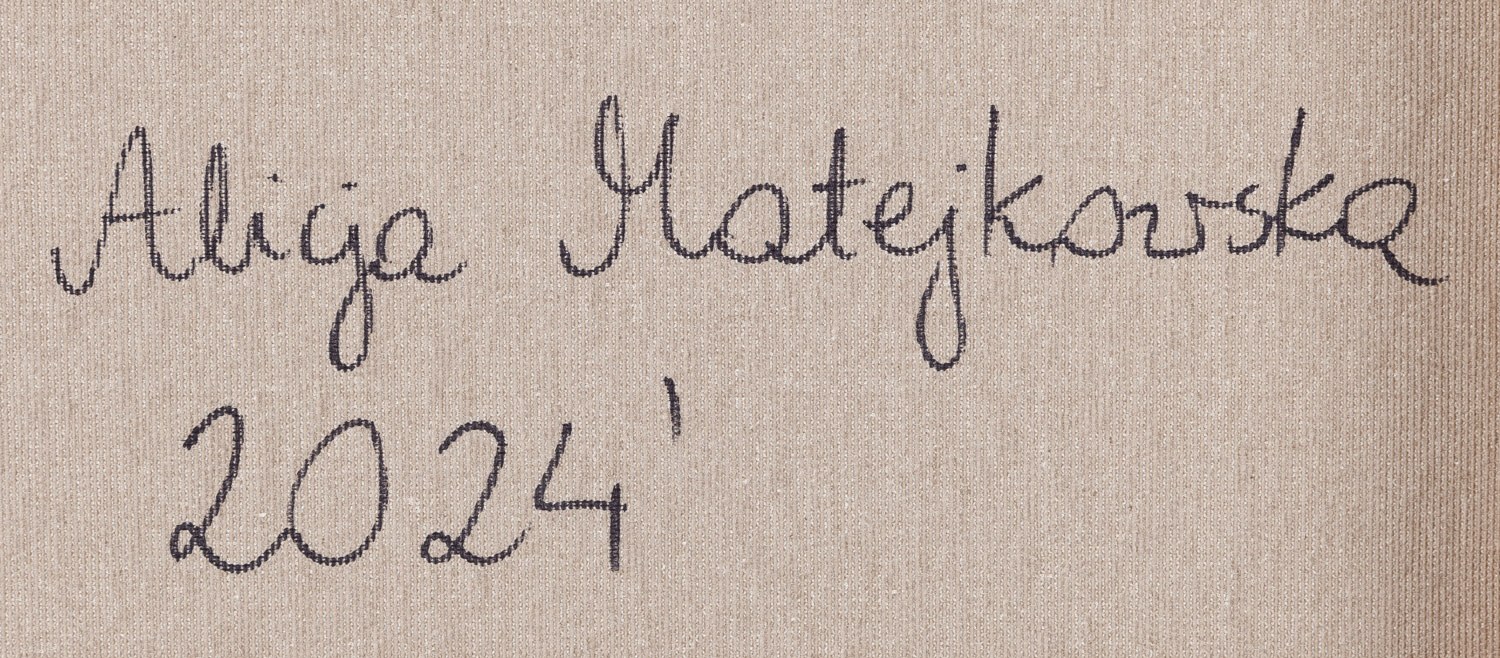 Alicja Matejkowska
2024'